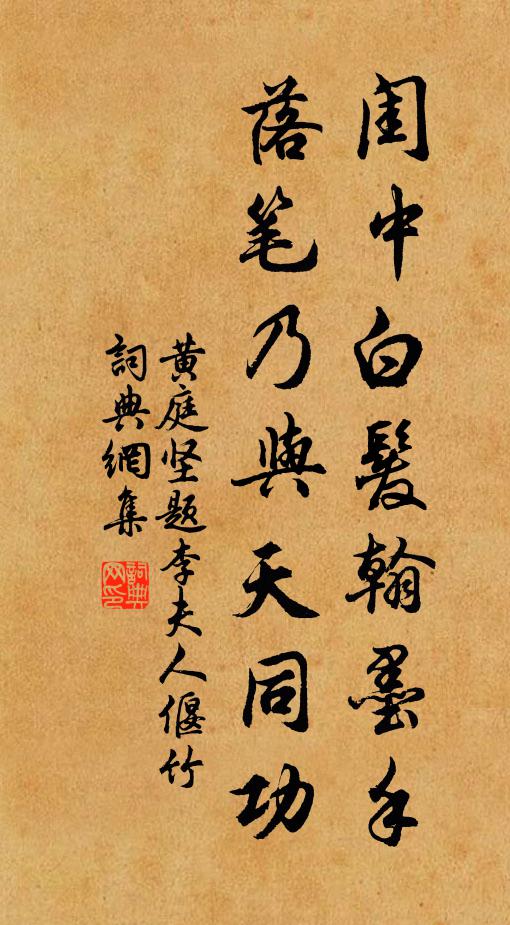 闺中白髮翰墨手
落笔乃與天同功
黄庭坚题李夫人偃竹
詞典網集
詞典网印